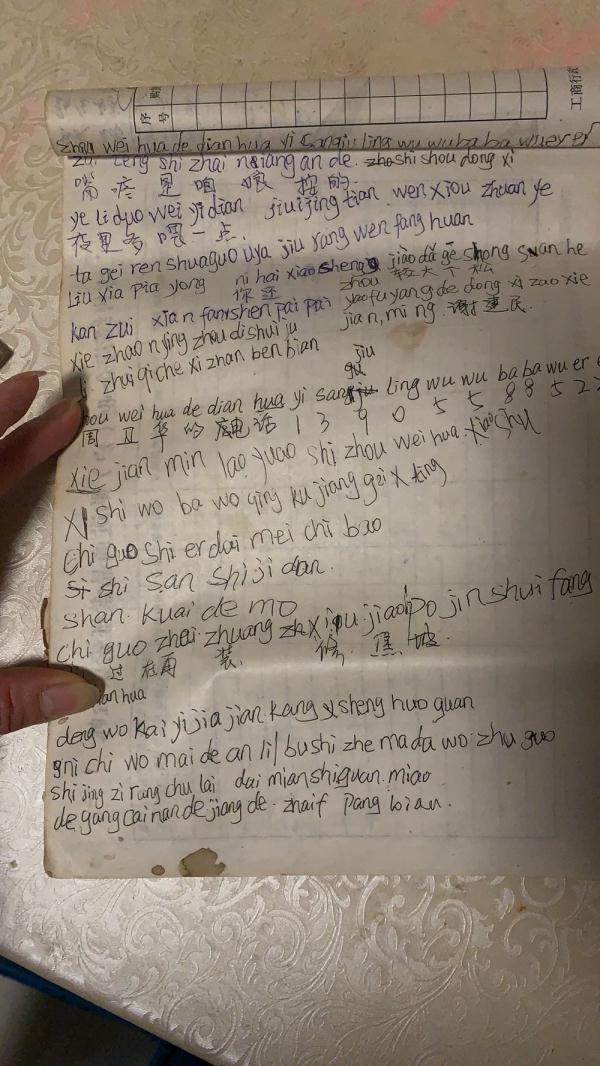 序号
工商行政
zhou wei hua de dian hua yi san jiu ling wu wu ba ba wu er er
zai teng shi zhai niang an de. shou dong xi
ye li duo wei yi dian jiu jing tian wen xiou zhuan ye
夜里多喂一点.
ta gei ren shua guo u ya jiu rang wen fang huan
Liu xia pia yong ni hai xiao sheng jiào dǎ gē shong suan he
kan zui xian fan shen pai pai yao fu yang de dong xi zao xie
xie zhao n ying zhou di shui ju jian, mi ng. 谢建民.
zhui qi che xi zhan ben bian
jiu
zhou wei hua de dian hua yi san ling wu wu ba ba wu er
周卫华的电话 1 3 9 0 5 5 8 8 5 2 2
xie jian min lao yuao shi zhou wei hua. xiao shu
xi shi wo ba wo qing ku jiang gei x ting
chi guo shi er dai mei chi bao
si shi san shi ji dan.
shan. kuai de mo
chi guo zhai. zhuang xiou jiao po jin shui fang
过 在 再 装. 修. 焦 坡.
an hua
deng wo kai yi jia jian. kang sheng huo guan
gni chi wo mai de an li bu shi zhe ma da wo. zhu guo
shi jing zi rang chu lai dai mian shi guan. miao
de gang cai nan de jiang de. zhai f pang bian.